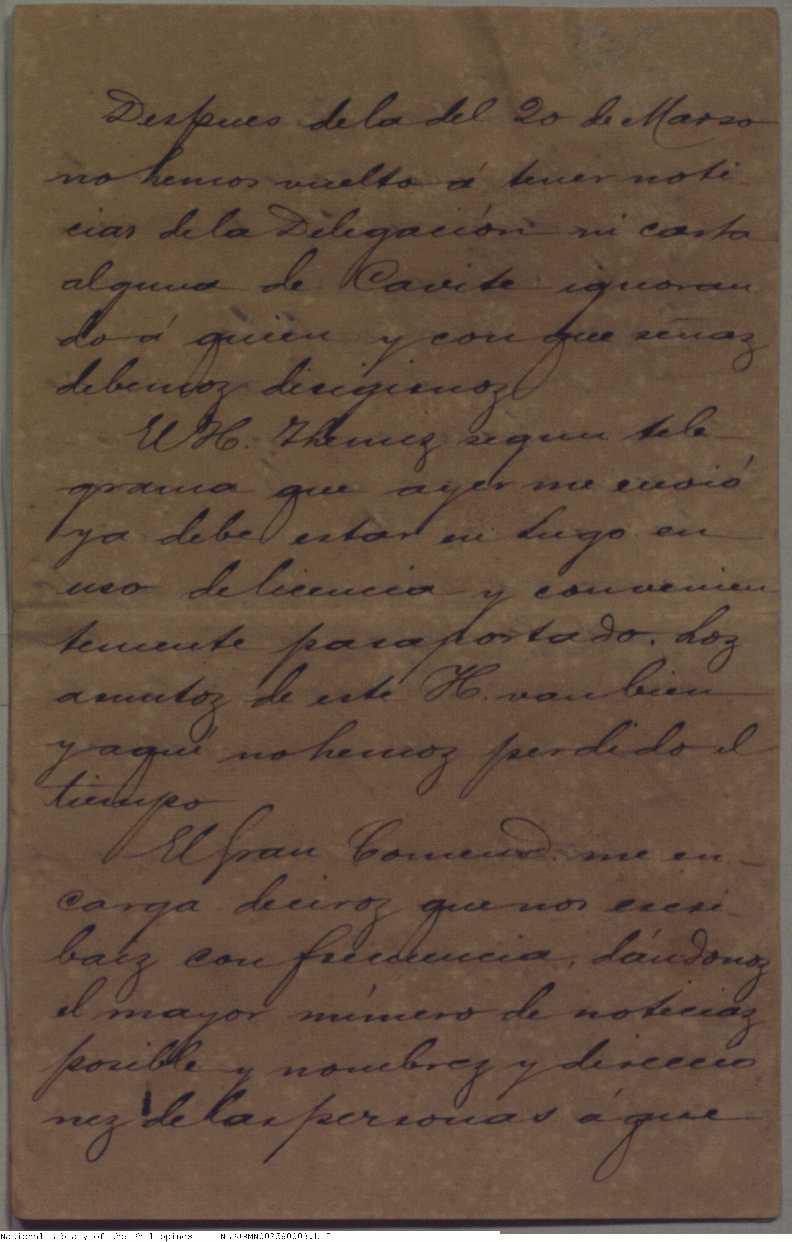 Despues de la del 20 de Marzo
no hemos vuelto á tener noti-
cias de la Delegación ni carta
alguna de Cavite ignoran
do á quien y con que señaz
debemoz dirigirnoz
El H. Themez segun tele-
grama que ayer me envió
ya debe estar en Lugo en
uso de licencia y convenien
temente pasaportado. Loz
asuntoz de este H. van bien
y aquí no hemoz perdido el
tiempo
El Gran Comend. me en-
carga deciroz que nos escri-
baiz con frecuencia, dándonoz
el mayor número de noticiaz
posible y nombrez y direccio
nez de las personas á que
National Library of the Philippines